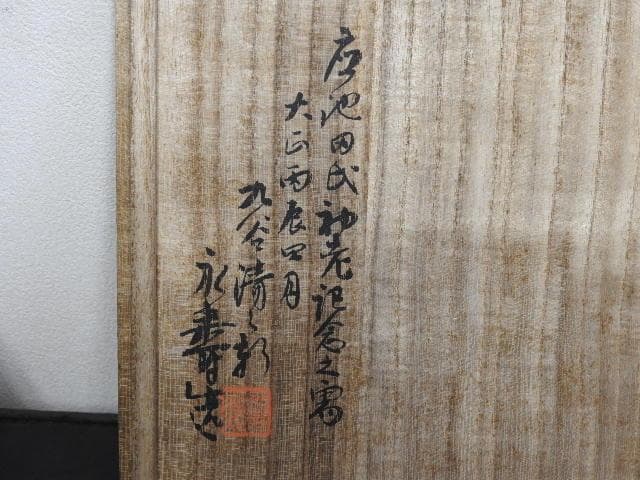 応池田氏初老記念之需
大正丙辰四月
九谷清々軒
永寿造